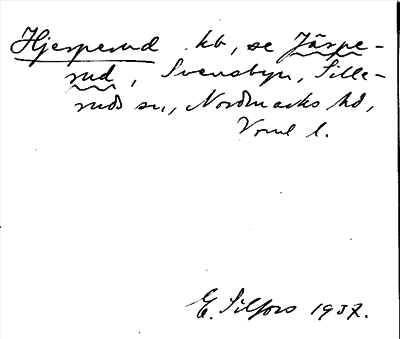 Hjesperud kb, se Järpe-
rud, Svensbyn, Sille-
ruds sn, Nordmarks hd,
Vrml l.
E. Silfors 1937.